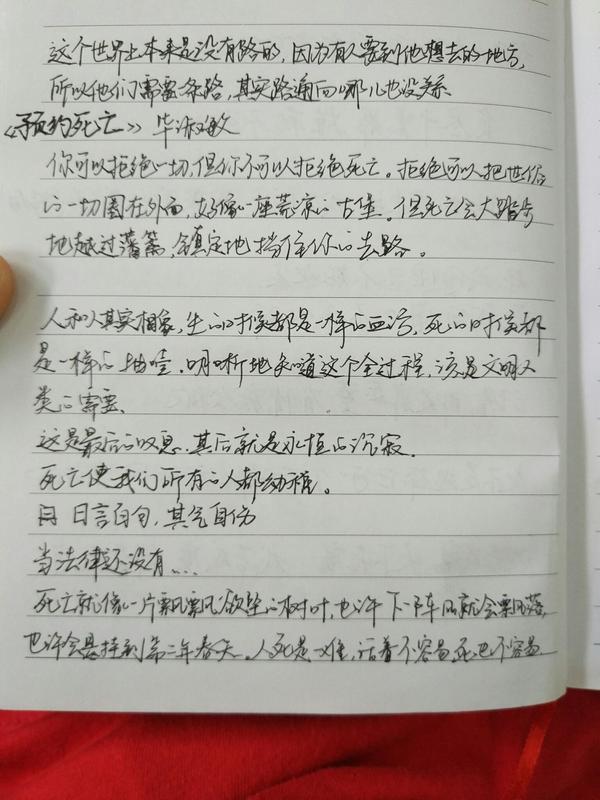 这个世界上本来是没有路的，因为有人要到他想去的地方，
所以他们需要一条路，其实路通向哪儿也没关系
《预约死亡》 毕淑敏
你可以拒绝一切，但你不可以拒绝死亡。拒绝可以把世俗
的一切围在外面，好像一座荒凉的古堡。但死亡会大踏步
地越过藩篱，镇定地挡住你的去路。
人和人其实相象，生的时候都是一样的血污，死的时候都
是一样的抽噎，明晰地知道这个全过程，该是文明人
类的需要。
这是最后的叹息，其后就是永恒的沉寂。
死亡使我们所有的人都幼稚。
日言百句，其气自伤
当法律还没有....
死亡就像一片飘飘欲坠的树叶，也许下一阵风就会飘落，
也许会悬挂到第二年春天。人死是一难，活着不容易，死也不容易